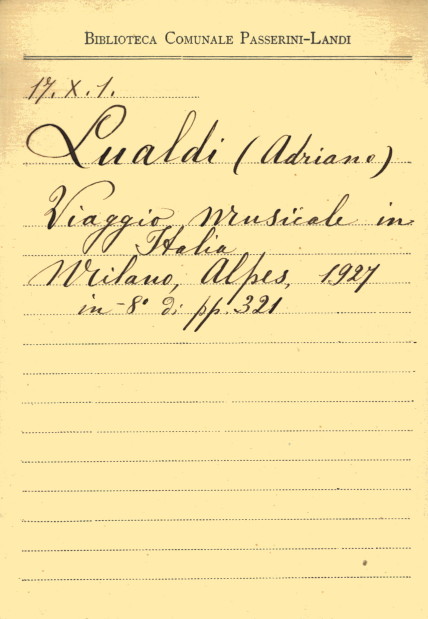 BIBLIOTECA COMUNALE PASSERINI-LANDI
17. X. 1.
Lualdi (Adriano)
Viaggio musicale in
Italia
Milano, Alpes, 1927
in-8° di pp. 321